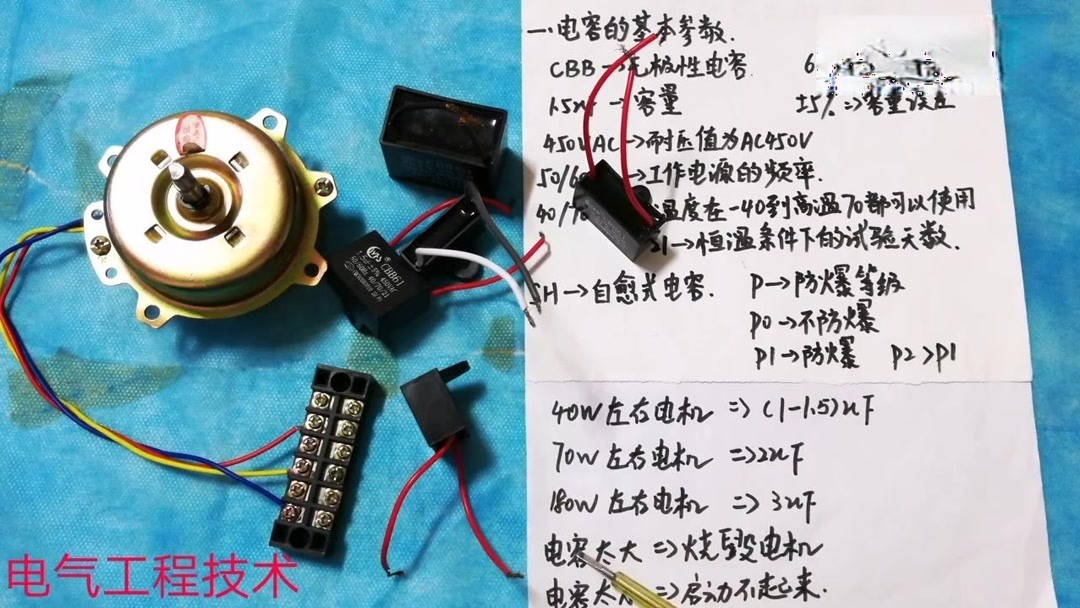 一.电容的基本参数.
CBB→无极性电容. 6
1.5uF→容量 ±5%=>容量误差
450VAC→耐压值为AC450V
50/60→工作电源的频率.
40/70 温度在-40到高温70都可以使用
21→恒温条件下的试验天数.
SH→自愈式电容. P→防爆等级
P0→不防爆
P1→防爆 P2>P1
40W左右电机=>(1-1.5)uF
70W左右电机=>2uF
180W左右电机=>3uF
电容太大=>烧毁电机
电容太小=>启动不起来.
CBB61
1.5uF±5% 450VAC
50/60Hz 40/70/21
电气工程技术